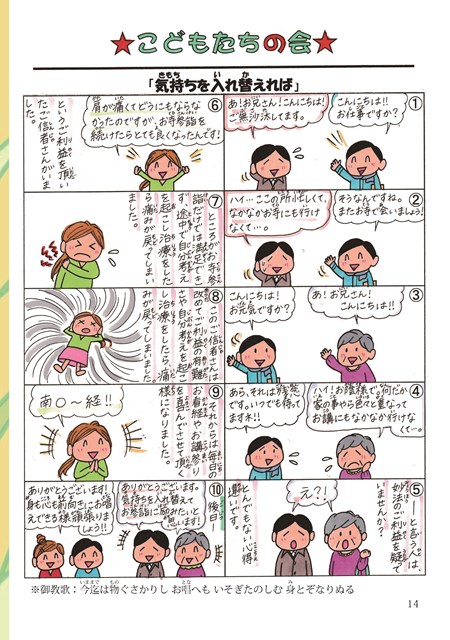 ★こどもたちの会★
「気持ちを入れ替えれば」
①
こんにちは!!
お仕事ですか?
あ!お兄さん!こんにちは!
ご無沙汰してます。
②
そうなんですね。
またお寺で会いましょう!
ハイ…ここの所忙しくて、
なかなかお寺にも行け
なくて…。
③
あ!お兄さん!
こんにちは!!
こんにちは!
お元気ですか?
④
ハイ!お陰様で。何だか
家の事やら色々と重なって
お講にもなかなか行けな
くて…。
あら、それは残念
です。いつでも待って
ます
⑤
――と言う人は、
妙法のご利益を疑って
いませんか?
え?!
とんでもない心得
違いです。
⑥
肩が痛くてどうにもならな
かったのですが、お寺参詣を
続けたらとても良くなったんです!
というご利益を頂い
たご信者さんがいま
した。
⑦
ところがお寺参
詣だけでは満足でき
ず、途中で自分考え
を起こし治療をした
ら痛みが戻ってしまい
ました。
⑧
このご信者さんは
改めてご利益の有難
さや自分考えを起こ
し治療をしたら、痛
みが戻ってしまいました
⑨
それからは毎日
お看経やお講参り
を喜んでさせて頂く
様になりました。
南○〜経!!
⑩
後日
ありがとうございます。
気持ちを入れ替えて
お参詣に励みたいと
思います!
ありがとうございます!
身も心も前向きにお唱
えできる様頑張りま
しょう!
※御教歌:今迄は物ぐさかりし お唱へも いそぎたのしむ 身とぞなりぬる
14